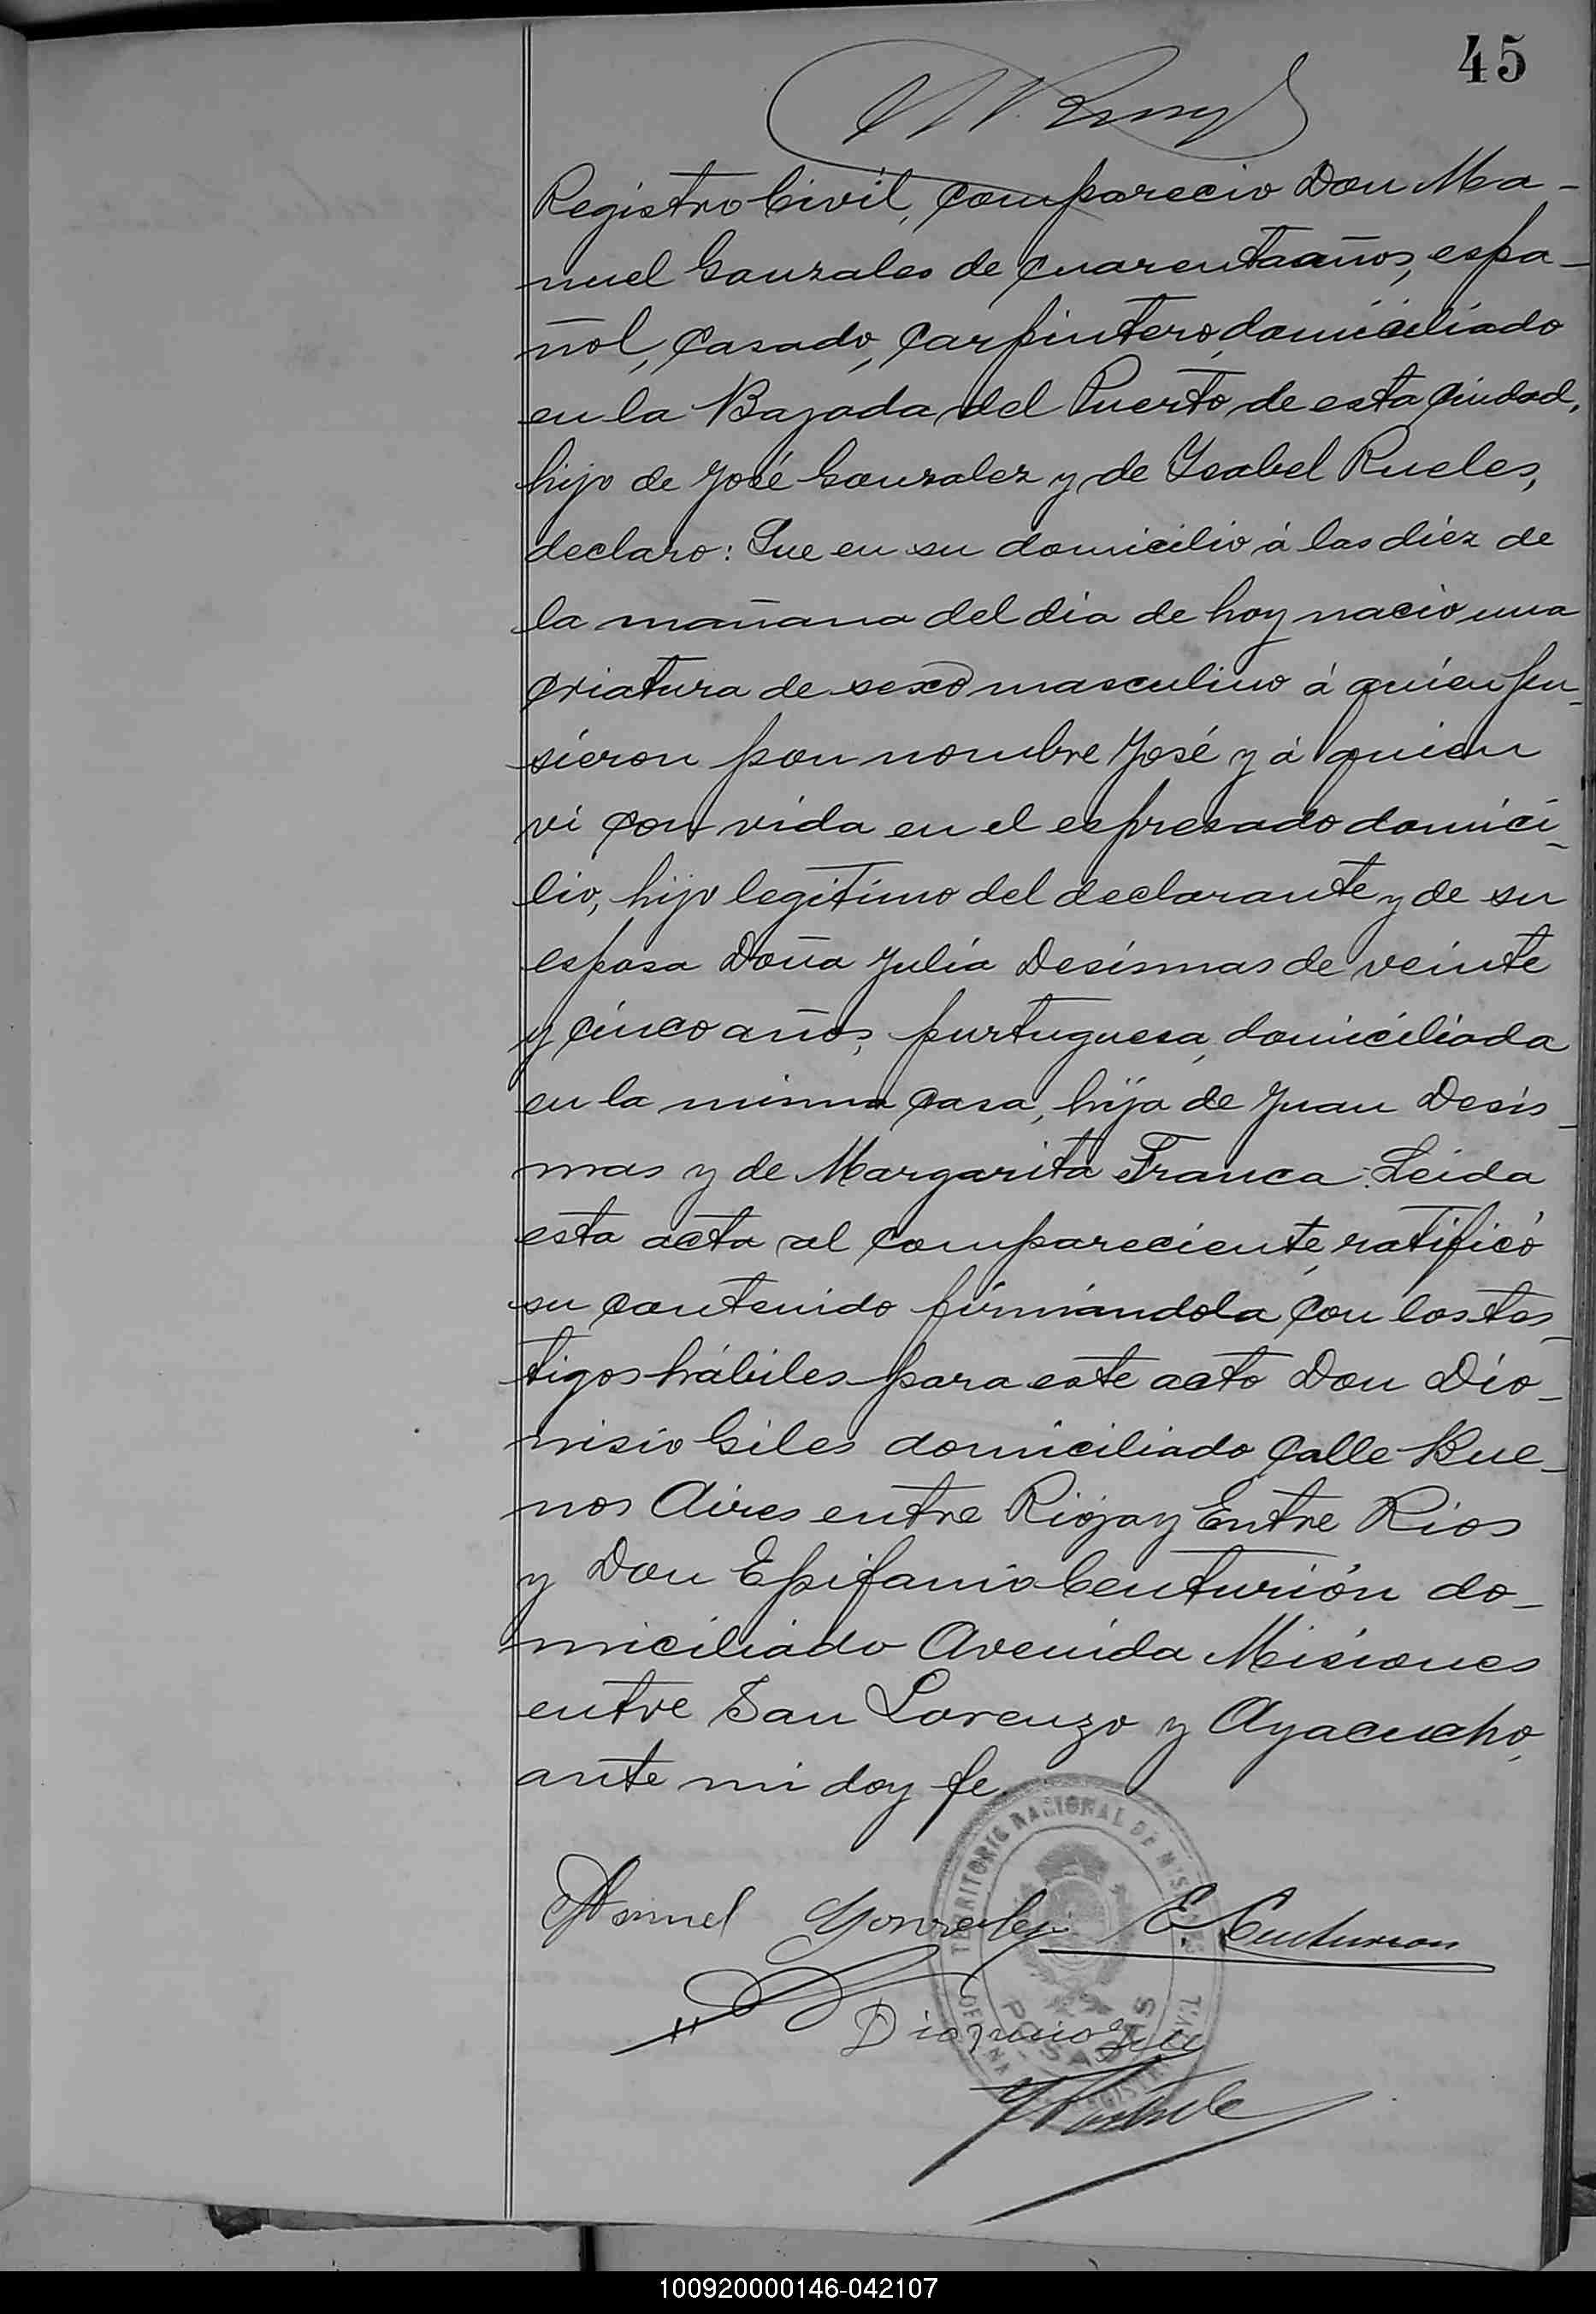 45
Registro Civil, comparecio Don Ma-
nuel Gonzales de cuarenta años, espa-
ñol, casado, carpintero, domiciliado
en la Bajada del Puerto de esta ciudad,
hijo de José Gonzalez y de Ysabel Rueles,
declaro: Que en su domicilio á las diez de
la mañana del dia de hoy nacio una
criatura de sexo masculino á quien pu-
sieron pon nombre José y á quien
vi con vida en el espresado domici-
lio, hijo legitimo del declarante y de su
esposa Doña Julia Desismas de veinte
y cinco años, purtuguesa, domiciliada
en la misma casa, hija de Juan Desis-
mas y de Margarita Franca. Leida
esta acta al compareciente, ratificó
su contenido firmándola con los tes-
tigos hábiles para este acto Don Dio-
nisio Giles domiciliado calle Bue-
nos Aires entre Rioja y Entre Rios
y Don Epifanio Centurión do-
miciliado Avenida Misiones
entre San Lorenzo y Ayacucho,
ante mi doy fe.
TERRITORIO NACIONAL DE MISIONES
Manuel Gonzalez E. Centurion
POSADAS
Dionicio
100920000146-042107